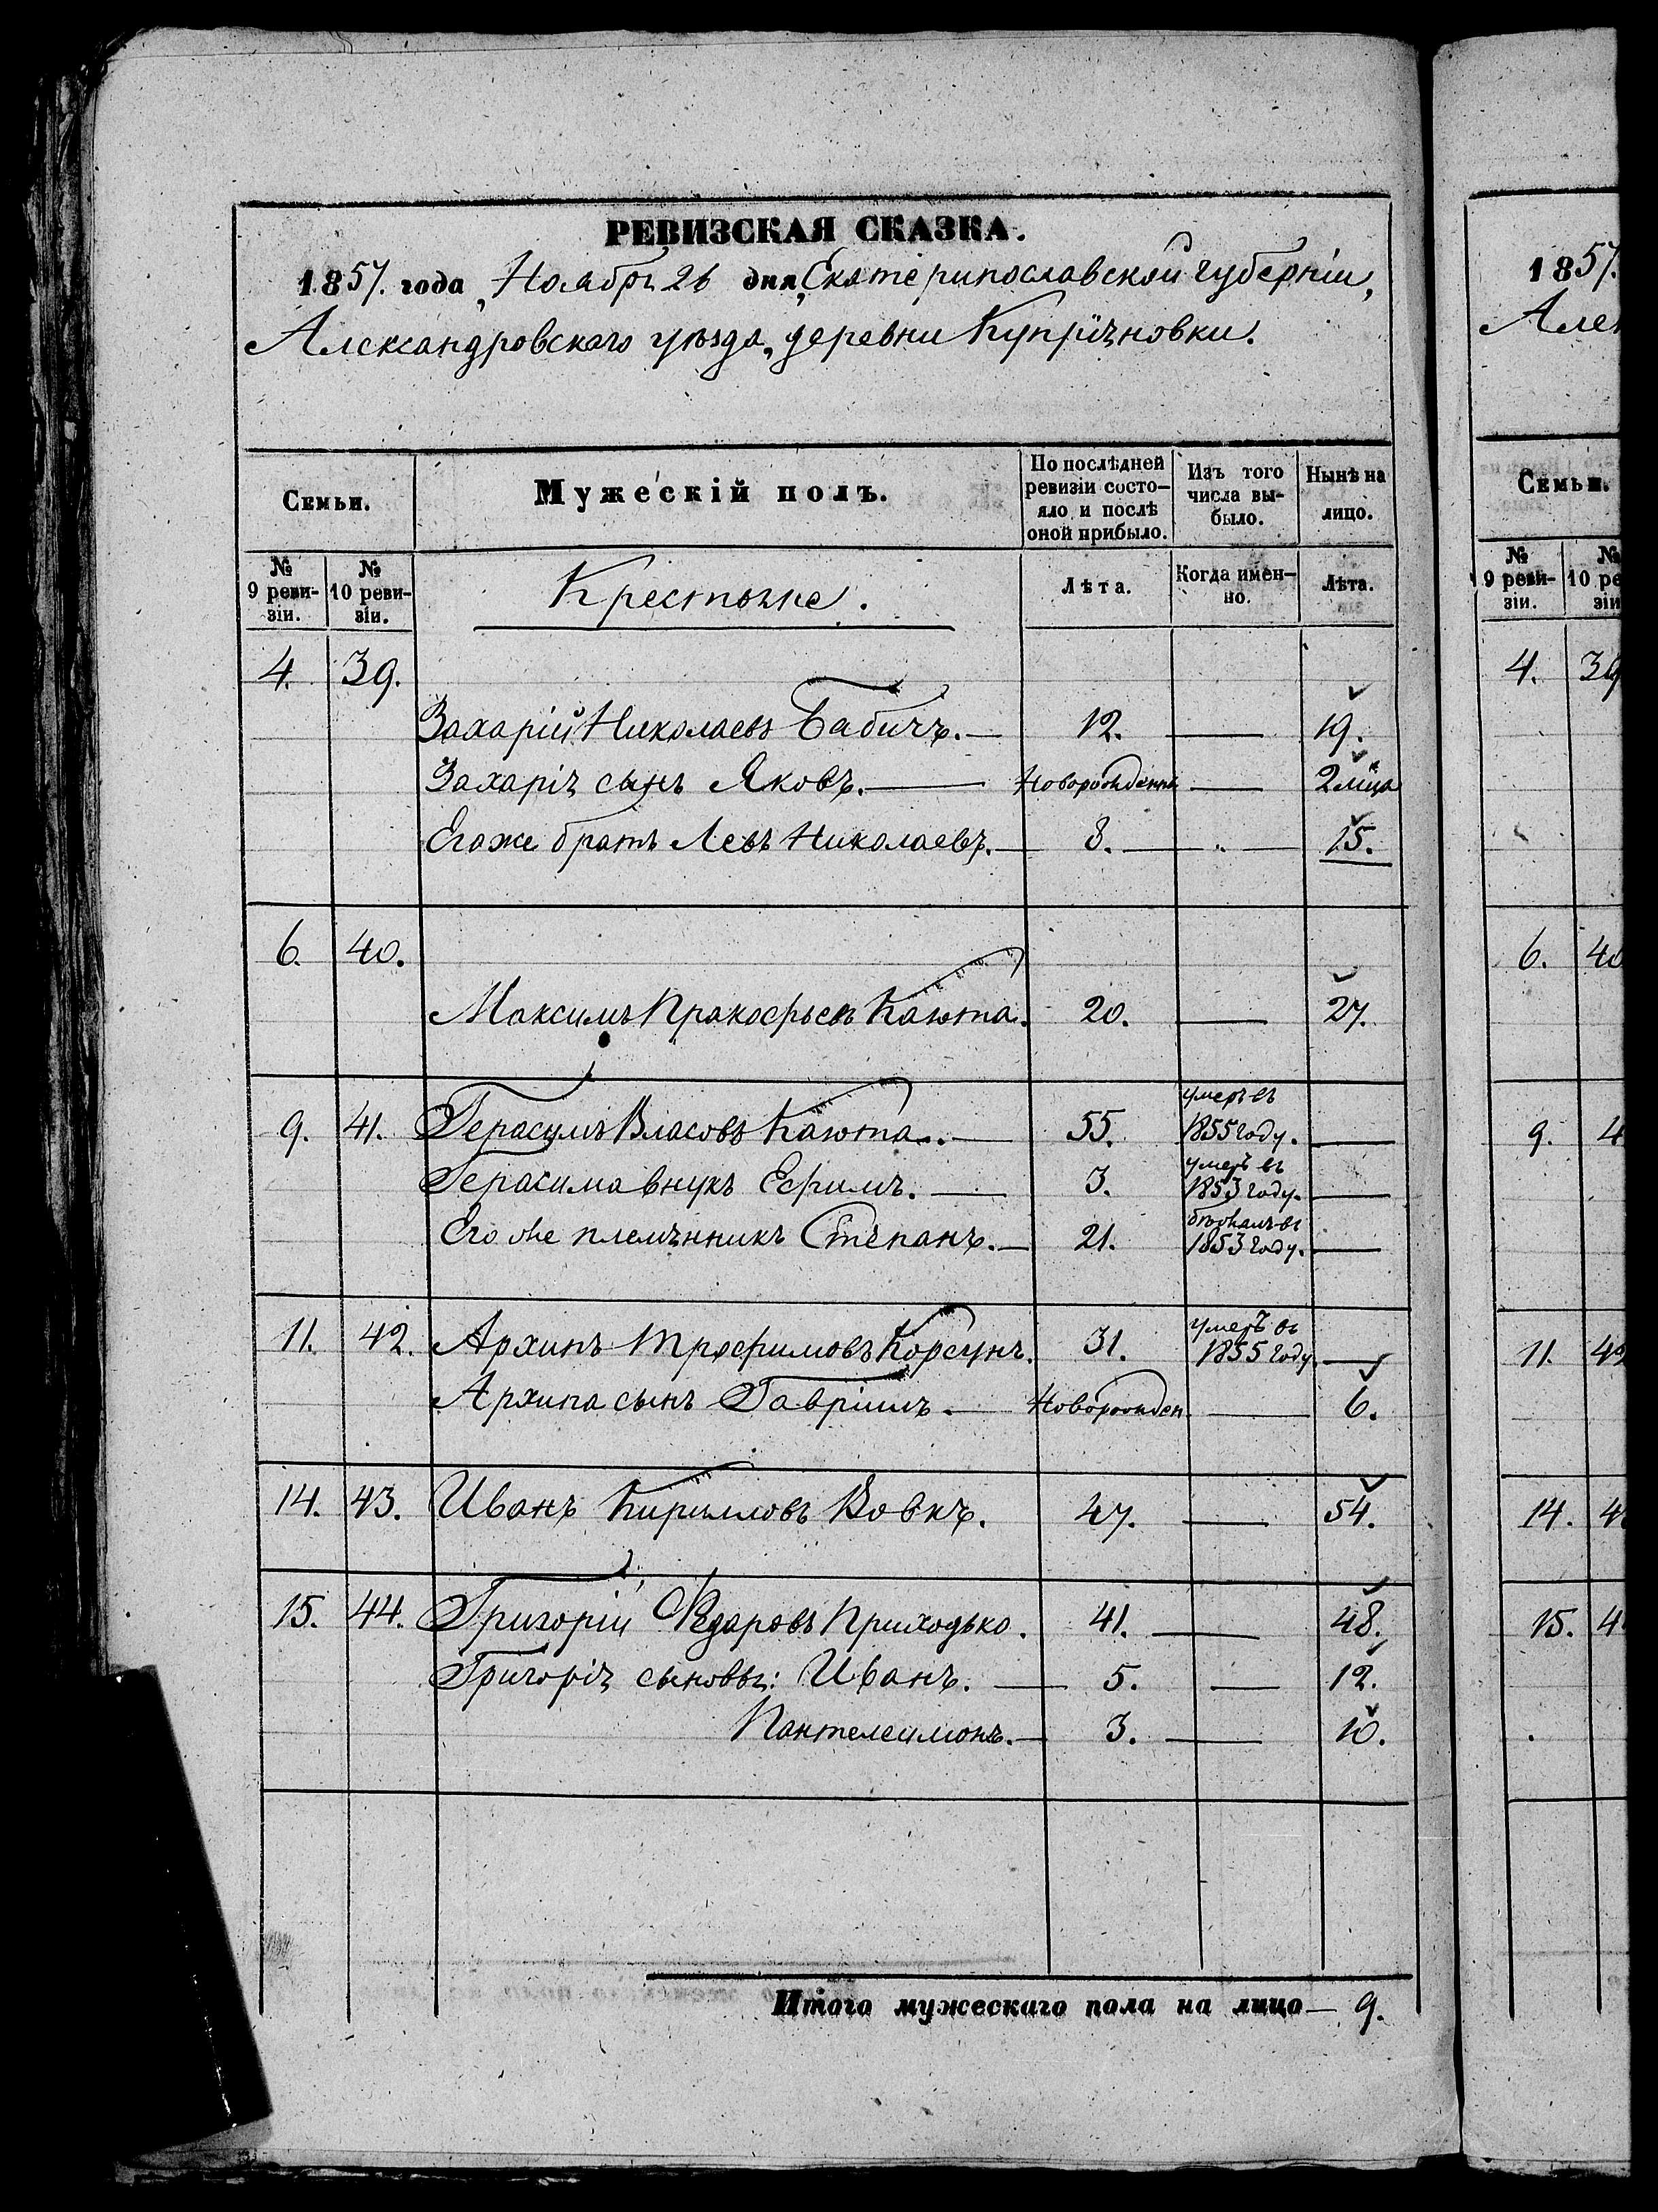 РЕВИЗСКАЯ СКАЗКА.
1857. года Ноября 26 дня, Екатеринославской губерніи,
Александровскаго уѣзда, деревни Купріяновки.
Семьи.
Мужескій полъ.
По послѣдней ревизіи состо-
яло и послѣ
оной прибыло.
Изъ того
числа вы-
было.
Нынѣ на
лицо.
№
9 реви-
зіи.
№
10 реви-
зіи.
Крестьяне.
Лѣта.
Когда имен-
но.
Лѣта.
4. 39.
Захарій Николаевъ Бабичъ. — 12. — 19.
Захарія сынъ Яковъ. — Новорожденный — 2 мца
Егоже братъ Левъ Николаевъ. — 8. — 15.
6. 40.
Максимъ Пракофьевъ Каюта. 20. — 27.
9. 41. Герасимъ Власовъ Каюта. — 55. умеръ въ 1855 году. —
Герасима внукъ Ефимъ. — 3. умеръ въ 1853 году. —
Его же племянникъ Степанъ. — 21. бѣжалъ въ 1853 году. —
11. 42. Архипъ Трофимовъ Корсунъ. 31. умеръ въ 1855 году —
Архипа сынъ Гавріилъ. — Новорожден. — 6.
14. 43. Иванъ Кириловъ Вовкъ. 47. — 54.
15. 44. Григорій Ѳедаровъ Приходько. 41. — 48.
Григорія сыновья: Иванъ. — 5. — 12.
Пантелеимонъ. — 3. — 10.
Итого мужескаго пола на лицо — 9.
1857.
Семьи.
№
9 реви-
зіи.
№
4.
6.
9.
11.
14.
15.